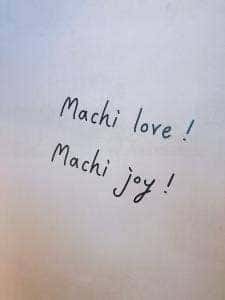 Machi love!
Machi joy!